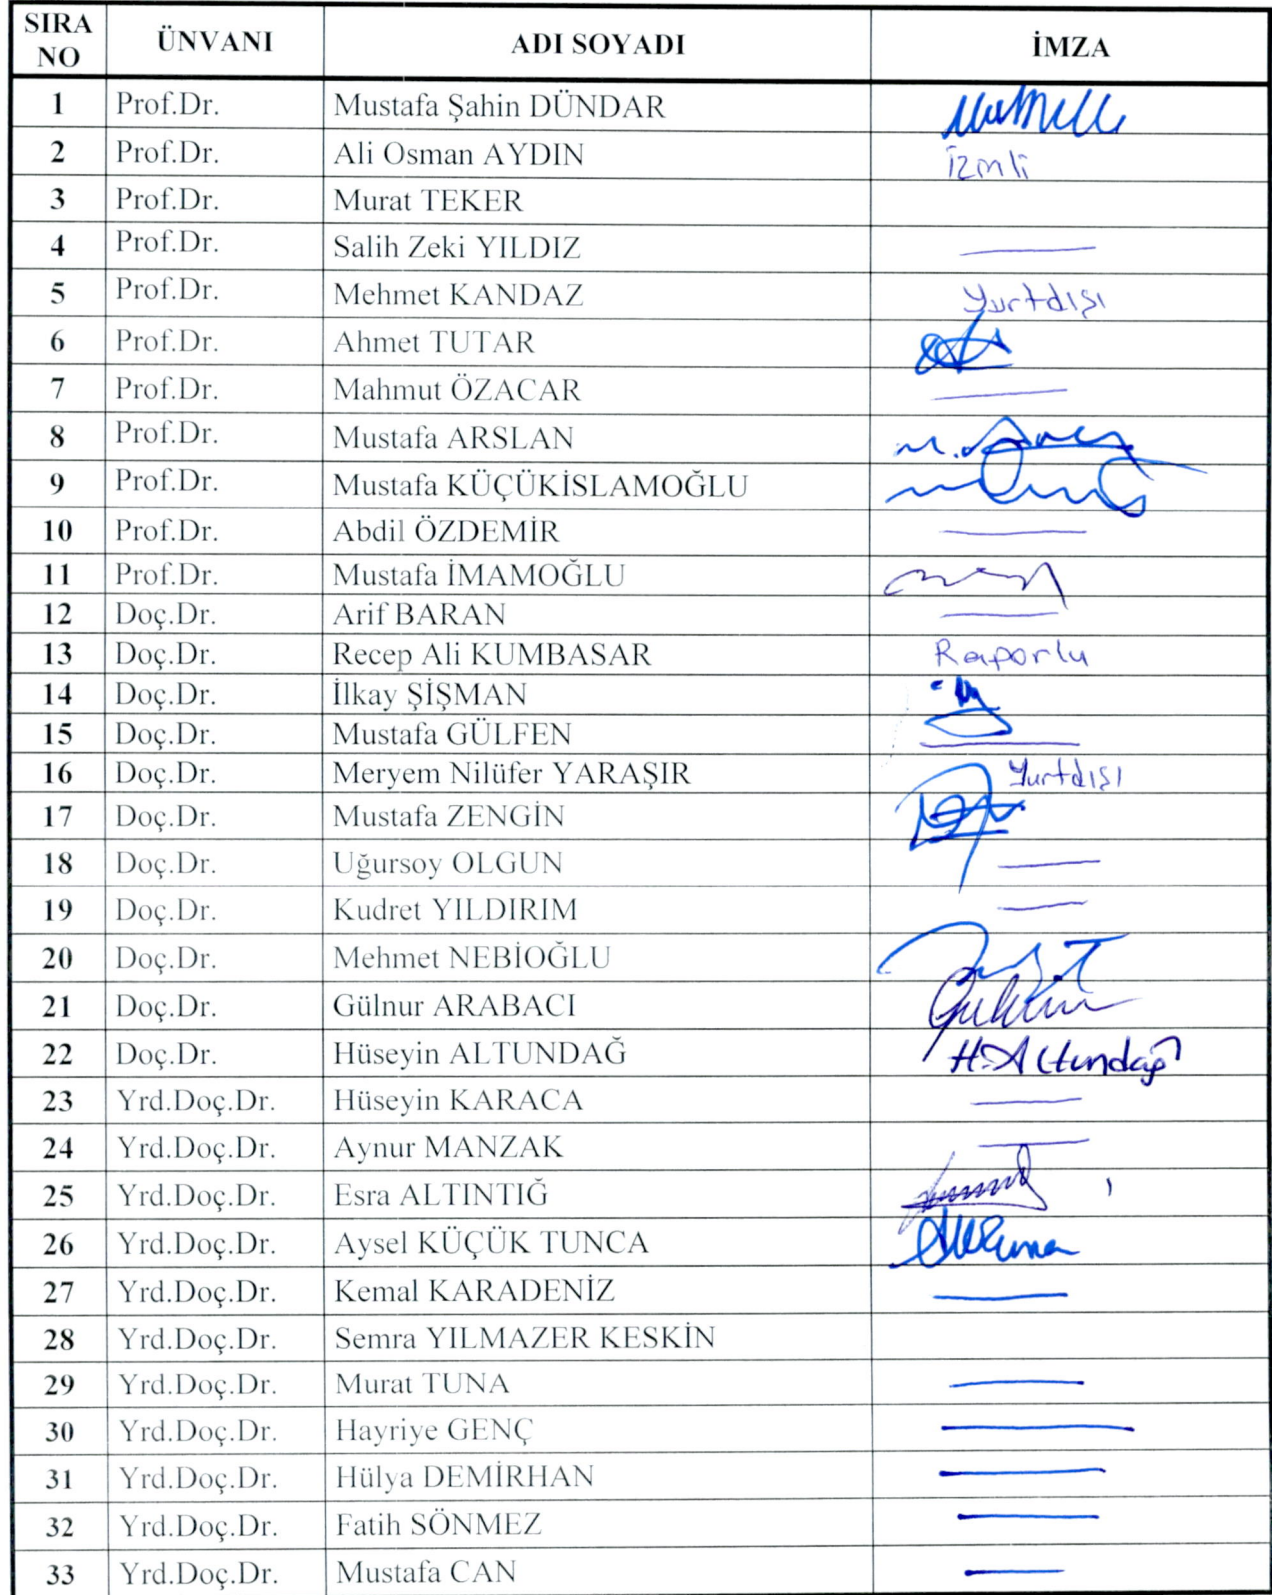 SIRA NO ÜNVANI ADI SOYADI İMZA
1 Prof.Dr. Mustafa Şahin DÜNDAR
2 Prof.Dr. Ali Osman AYDIN İzmli
3 Prof.Dr. Murat TEKER
4 Prof.Dr. Salih Zeki YILDIZ
5 Prof.Dr. Mehmet KANDAZ Yurtdışı
6 Prof.Dr. Ahmet TUTAR
7 Prof.Dr. Mahmut ÖZACAR
8 Prof.Dr. Mustafa ARSLAN
9 Prof.Dr. Mustafa KÜÇÜKİSLAMOĞLU
10 Prof.Dr. Abdil ÖZDEMİR
11 Prof.Dr. Mustafa İMAMOĞLU
12 Doç.Dr. Arif BARAN
13 Doç.Dr. Recep Ali KUMBASAR Raporlu
14 Doç.Dr. İlkay ŞİŞMAN
15 Doç.Dr. Mustafa GÜLFEN
16 Doç.Dr. Meryem Nilüfer YARAŞIR Yurtdışı
17 Doç.Dr. Mustafa ZENGİN
18 Doç.Dr. Uğursoy OLGUN
19 Doç.Dr. Kudret YILDIRIM
20 Doç.Dr. Mehmet NEBİOĞLU
21 Doç.Dr. Gülnur ARABACI
22 Doç.Dr. Hüseyin ALTUNDAĞ H.Altundağ
23 Yrd.Doç.Dr. Hüseyin KARACA
24 Yrd.Doç.Dr. Aynur MANZAK
25 Yrd.Doç.Dr. Esra ALTINTIĞ
26 Yrd.Doç.Dr. Aysel KÜÇÜK TUNCA
27 Yrd.Doç.Dr. Kemal KARADENİZ
28 Yrd.Doç.Dr. Semra YILMAZER KESKİN
29 Yrd.Doç.Dr. Murat TUNA
30 Yrd.Doç.Dr. Hayriye GENÇ
31 Yrd.Doç.Dr. Hülya DEMİRHAN
32 Yrd.Doç.Dr. Fatih SÖNMEZ
33 Yrd.Doç.Dr. Mustafa CAN